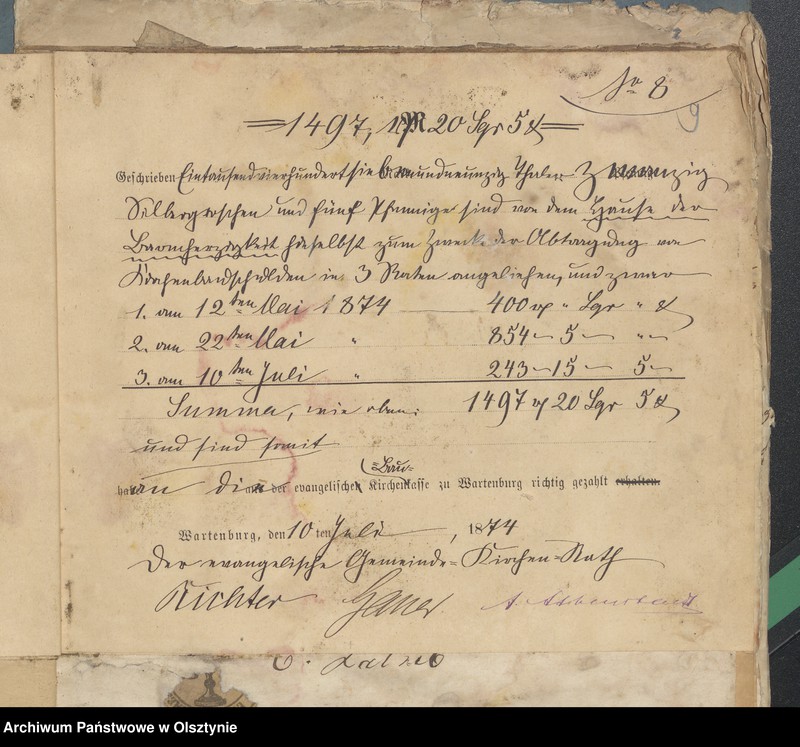 No 8
9
1497, rℳ 20 Sgr 5 ₰
Geschrieben Eintausendvierhundertsiebenundneunzig Thaler zwanzig
Silbergroschen und fünf Pfennige sind von dem Hause der
Barmherzigkeit hieselbst zum Zweck der Abtragung von
Kirchenbauschulden in 3 Raten angeliehen, und zwar
1. am 12ten Mai 1874 400 rℳ " Sgr " ₰
2. am 22ten Mai " 854 – 5 – " –
3. am 10ten Juli " 243 – 15 – 5 –
Summa, wie oben: 1497 rℳ 20 Sgr 5 ₰
und sind somit
Bau-
an die der evangelischen Kirchenkasse zu Wartenburg richtig gezahlt erhalten.
Wartenburg, den 10 ten Juli, 1874
Der evangelische Gemeinde-Kirchen-Rath
Richter
Archiwum Państwowe w Olsztynie